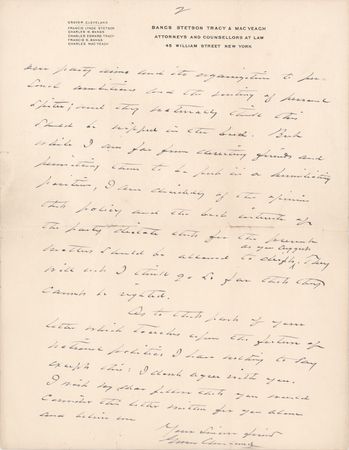 2
GROVER CLEVELAND
FRANCIS LYNDE STETSON
CHARLES W. BANGS
CHARLES EDWARD TRACY
FRANCIS S. BANGS
CHARLES MAC VEAGH
BANGS STETSON TRACY & MAC VEAGH
ATTORNEYS AND COUNSELLORS AT LAW
45 WILLIAM STREET NEW YORK
our party and its organization to per-
sonal ambitions and the venting of personal
spites; and they naturally think this
should be nipped in the bud. But
while I am far from deserting friends and
permitting them to be put in a humiliating
position, I am decidedly of the opinion
that policy and the best interests of
the party dictate that for the present
as you suggest
matters should be allowed to drift. They
will not I think go so far that they
cannot be righted.
As to that part of your
letter which touches upon the future of
national politics I have nothing to say
except this: I don't agree with you.
I wish my dear that you would
consider this letter written for you alone
and believe me
Your sincere friend
Grover Cleveland